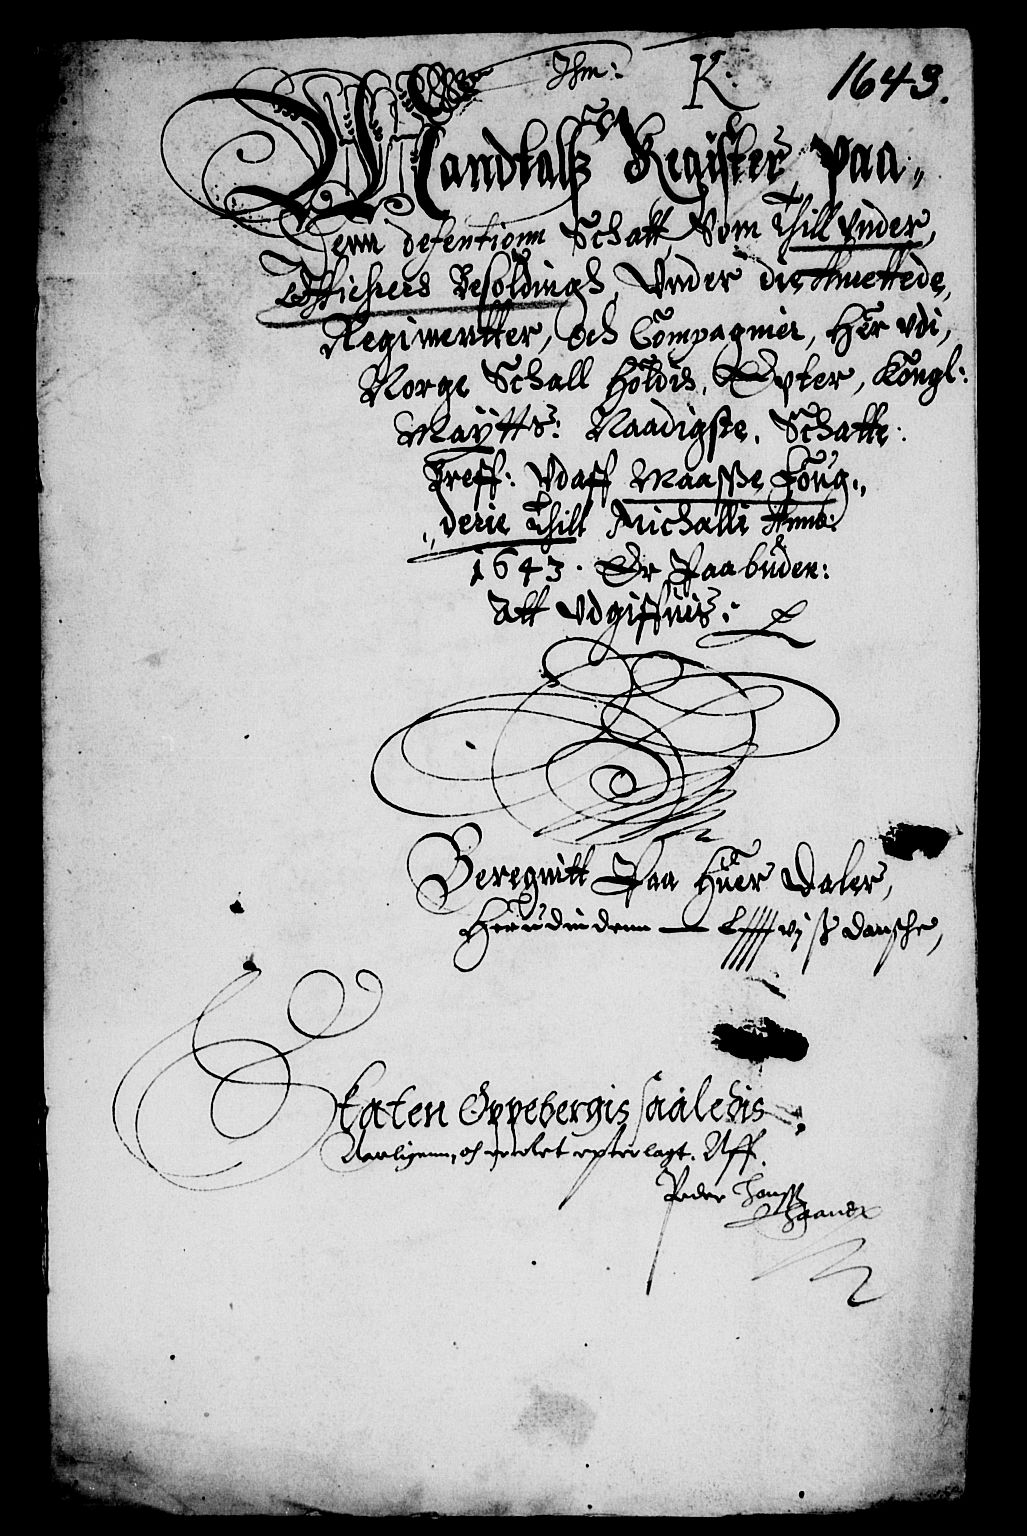 Thm: K. 1643.
Mandtals Register paa
Denn defentionn Schatt, Som Thill Under,
Officherers Besoldingh, Under die thuettede,
Regimentter, och Compagnier, Her Udi,
Norge Schall holdis, Epter, Kongl:
Maÿtts: Naadigste, Schatte
breff: Udaff Maasse Foug,,
derie Thill Michalli Anno:
1643. Er Paabuden:
Att Udgiffuis:
Beregnitt Paa Huer Daler,
Herudindenn vj ß dansche,
Skaten Oppebergis saaledis
Aff.
Peder Hanss
Haand